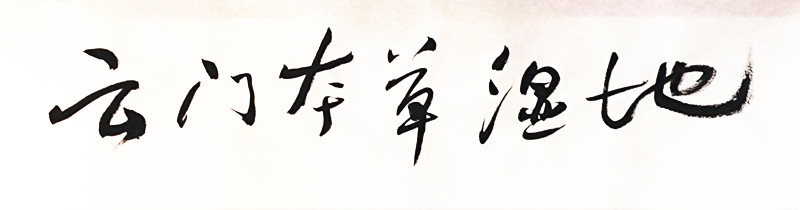 云门本草湿地